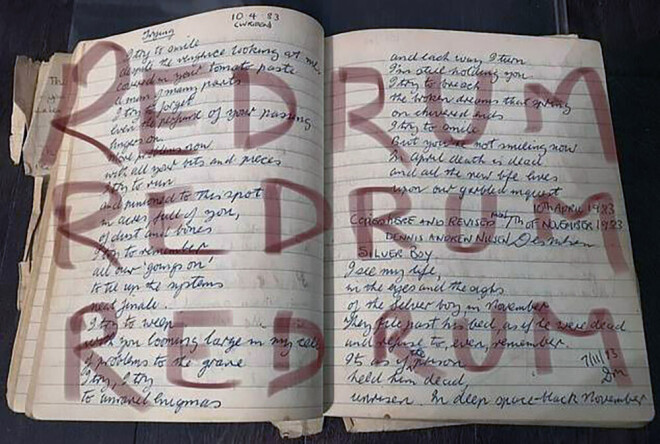 10 4 83
Trying
I try to smile
despite the vengeance looking at me,
covered in your tomato paste
a man of many parts
I try to forget
even the perfume of your passing
lingers on
with all your bits and pieces
I try to run
and pinioned to this spot
in acres, full of you,
of dust and bones
I try to remember
all our 'goings on'
to tie up the systems
neat finale.
I try to weep
with you looming large in my cell
problems to the grave
I try, I try
to unravel enigmas
and each way I turn
I'm still holding you
I try to
the broken dreams that
on ends
I try to smile
But you're not smiling now
In April death is dead
and all the new life lives
upon our garbled inquest
10th April 1983
AND REVISED 7th OF NOVEMBER 1983
DENNIS ANDREW NILSEN
SILVER BOY
I see my life,
in the eyes and the sighs
of the silver boy, in November
They file past his bed, as if he were dead
and refuse to, even, remember
Its as if the prison 7/11/83
held him dead
unrisen. In deep space-black November
REDRUM
REDRUM
REDRUM